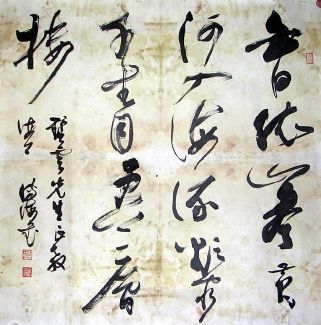 白日依山盡黃
河入海流欲窮
千里目更上一層
樓
先生正教